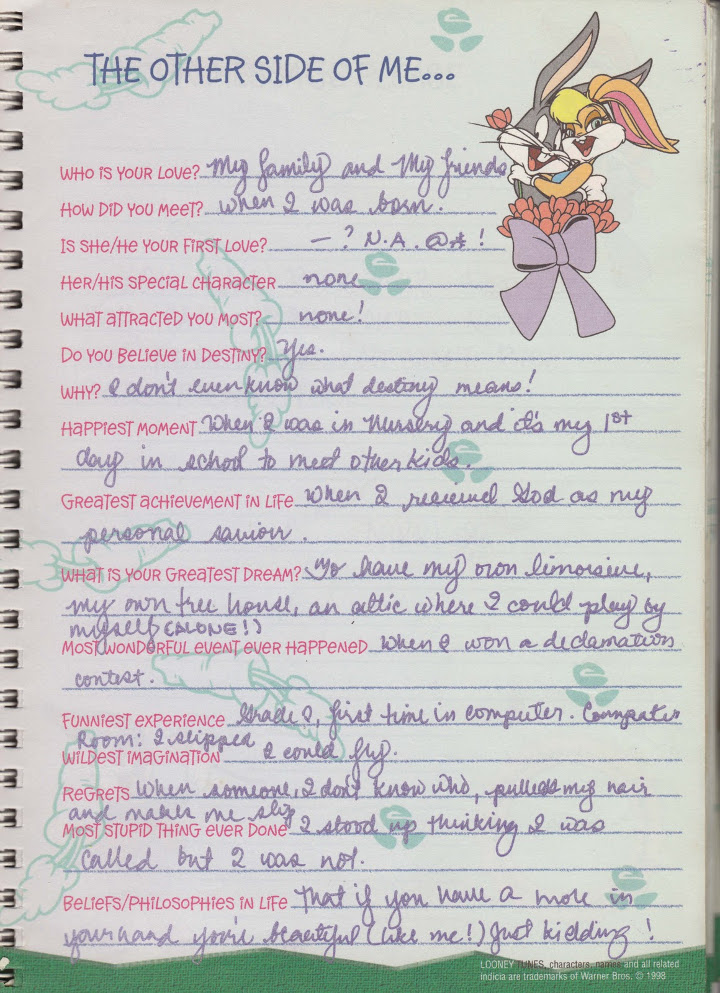 THE OTHER SIDE OF ME...
WHO IS YOUR LOVE? My family and My friends
HOW DID YOU MEET? when I was born.
IS SHE/HE YOUR FIRST LOVE? — ? N.A. @* !
HER/HIS SPECIAL CHARACTER none
WHAT ATTRACTED YOU MOST? none!
DO YOU BELIEVE IN DESTINY? Yes.
WHY? I don't even know what destiny means!
HAPPIEST MOMENT When I was in Nursery and it's my 1st
day in school to meet other kids.
GREATEST ACHIEVEMENT IN LIFE When I received God as my
personal saviour.
WHAT IS YOUR GREATEST DREAM? To have my own limorsine,
my own tree house, an attic where I could play by
myself (ALONE!)
MOST WONDERFUL EVENT EVER HAPPENED When I won a declamation
contest.
FUNNIEST EXPERIENCE Grade 2, first time in computer. Computer
Room: I slipped
WILDEST IMAGINATION I could fly.
REGRETS When someone, I don't know who, pulled my hair
and makes me slip
MOST STUPID THING EVER DONE I stood up thinking I was
called but I was not.
BELIEFS/PHILOSOPHIES IN LIFE That if you have a mole in
your hand you're beautiful (like me!) Just kidding!
LOONEY TUNES, characters, names and all related
indicia are trademarks of Warner Bros. © 1998